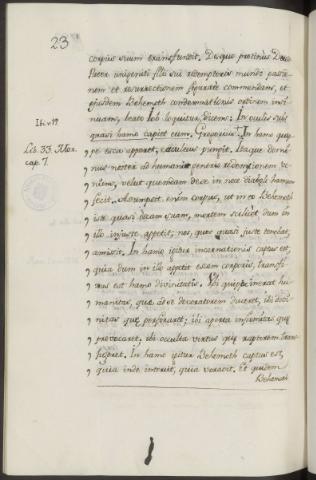 23
corpus suum transfundit. Deque protinus Deus
Pater unigeniti filii sui redemptoris mundi passio-
nem et resurrectionem figurate commendans, et
ejusdem Behemoth condemnationis ordinem insi-
nuans, beato Job loquitur, dicens: In oculis suis
quasi hamo capiet eum. Gregorius: In hamo quip-
pe esca apparet, aculeus pungit. Itaque domi-
nus noster ad humani generis redemptionem ve-
niens, velut quemdam de se in nece diaboli hamum
fecit. Assumpsit enim corpus, ut in eo Behemoth
iste quasi escam suam, mortem scilicet dum in
illo injuste appetit, nos, quos quasi juste tenebat,
amisit. In hamo igitur incarnationis captus est,
quia dum in illo appetit escam corporis, transfi-
xus est hamo divinitatis. Ibi quippe inerat hu-
manitas, quae ad se devoratorem duceret, ibi divi-
nitas quae perforaret; ibi aperta infirmitas quae
provocaret, ibi occulta virtus quae raptorem trans-
figeret. In hamo igitur Behemoth captus est,
quia inde interiit, quia voravit. Et quidem
Behemoth
Lib. 33. Mor.
cap. 7.